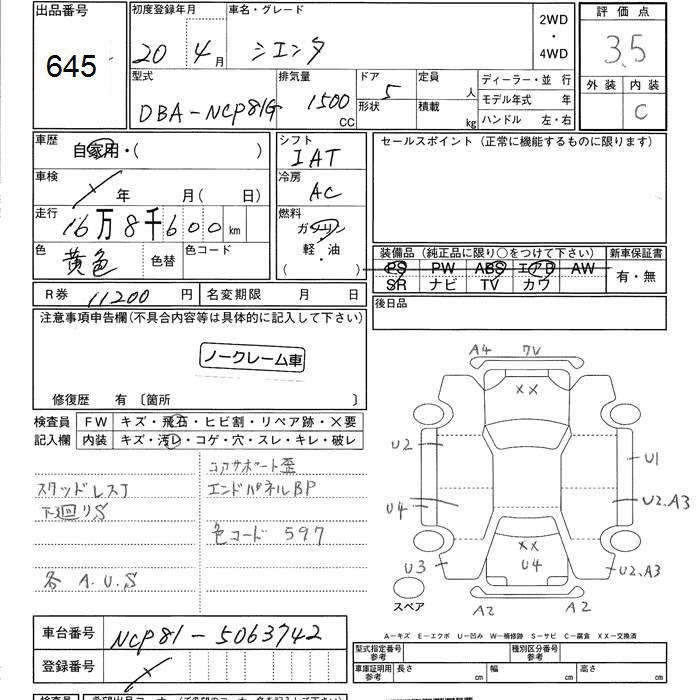 出品番号
645
初度登録年月
20年4月
車名・グレード
シエンタ
2WD
・
4WD
評価点
3.5
外装 内装
C
型式
DBA-NCP81G
排気量
1500
CC
ドア
5
形状
定員
人
積載
kg
ディーラー・並 行
モデル年式 年
ハンドル 左・右
車歴
自家用・( )
車検
年 月(日)
走行
16万8千600km
色
黄色
色替
色コード
シフト
IAT
冷房
AC
燃料
ガソリン
軽・油
( )
セールスポイント(正常に機能するものに限ります)
装備品(純正品に限り○をつけて下さい)
PS PW ABS エアB AW
SR ナビ TV カワ
新車保証書
有・無
R券 11200 円
名変期限 月 日
後日品
注意事項申告欄(不具合内容等は具体的に記入して下さい)
ノークレーム車
修復歴 有 〔箇所 〕
検査員 FW キズ・飛石・ヒビ割・リペア跡・X要
記入欄 内装 キズ・汚レ・コゲ・穴・スレ・キレ・破レ
コアサポート歪
スタッドレスJ
エンドパネルBP
下廻りS
色コード 597
各 A.U.S
A4 7V
XX
U2
U1
U4
U2.A3
XX
U4
U3
U2.A3
スペア
A2 A2
A-キズ E-エクボ U-凹み W-補修跡 S-サビ C-腐食 XX-交換済
車台番号
NCP81-5063742
登録番号
型式指定番号
参考
種別区分番号
参考
車庫証明用
参考
長さ cm
幅 cm
高さ cm